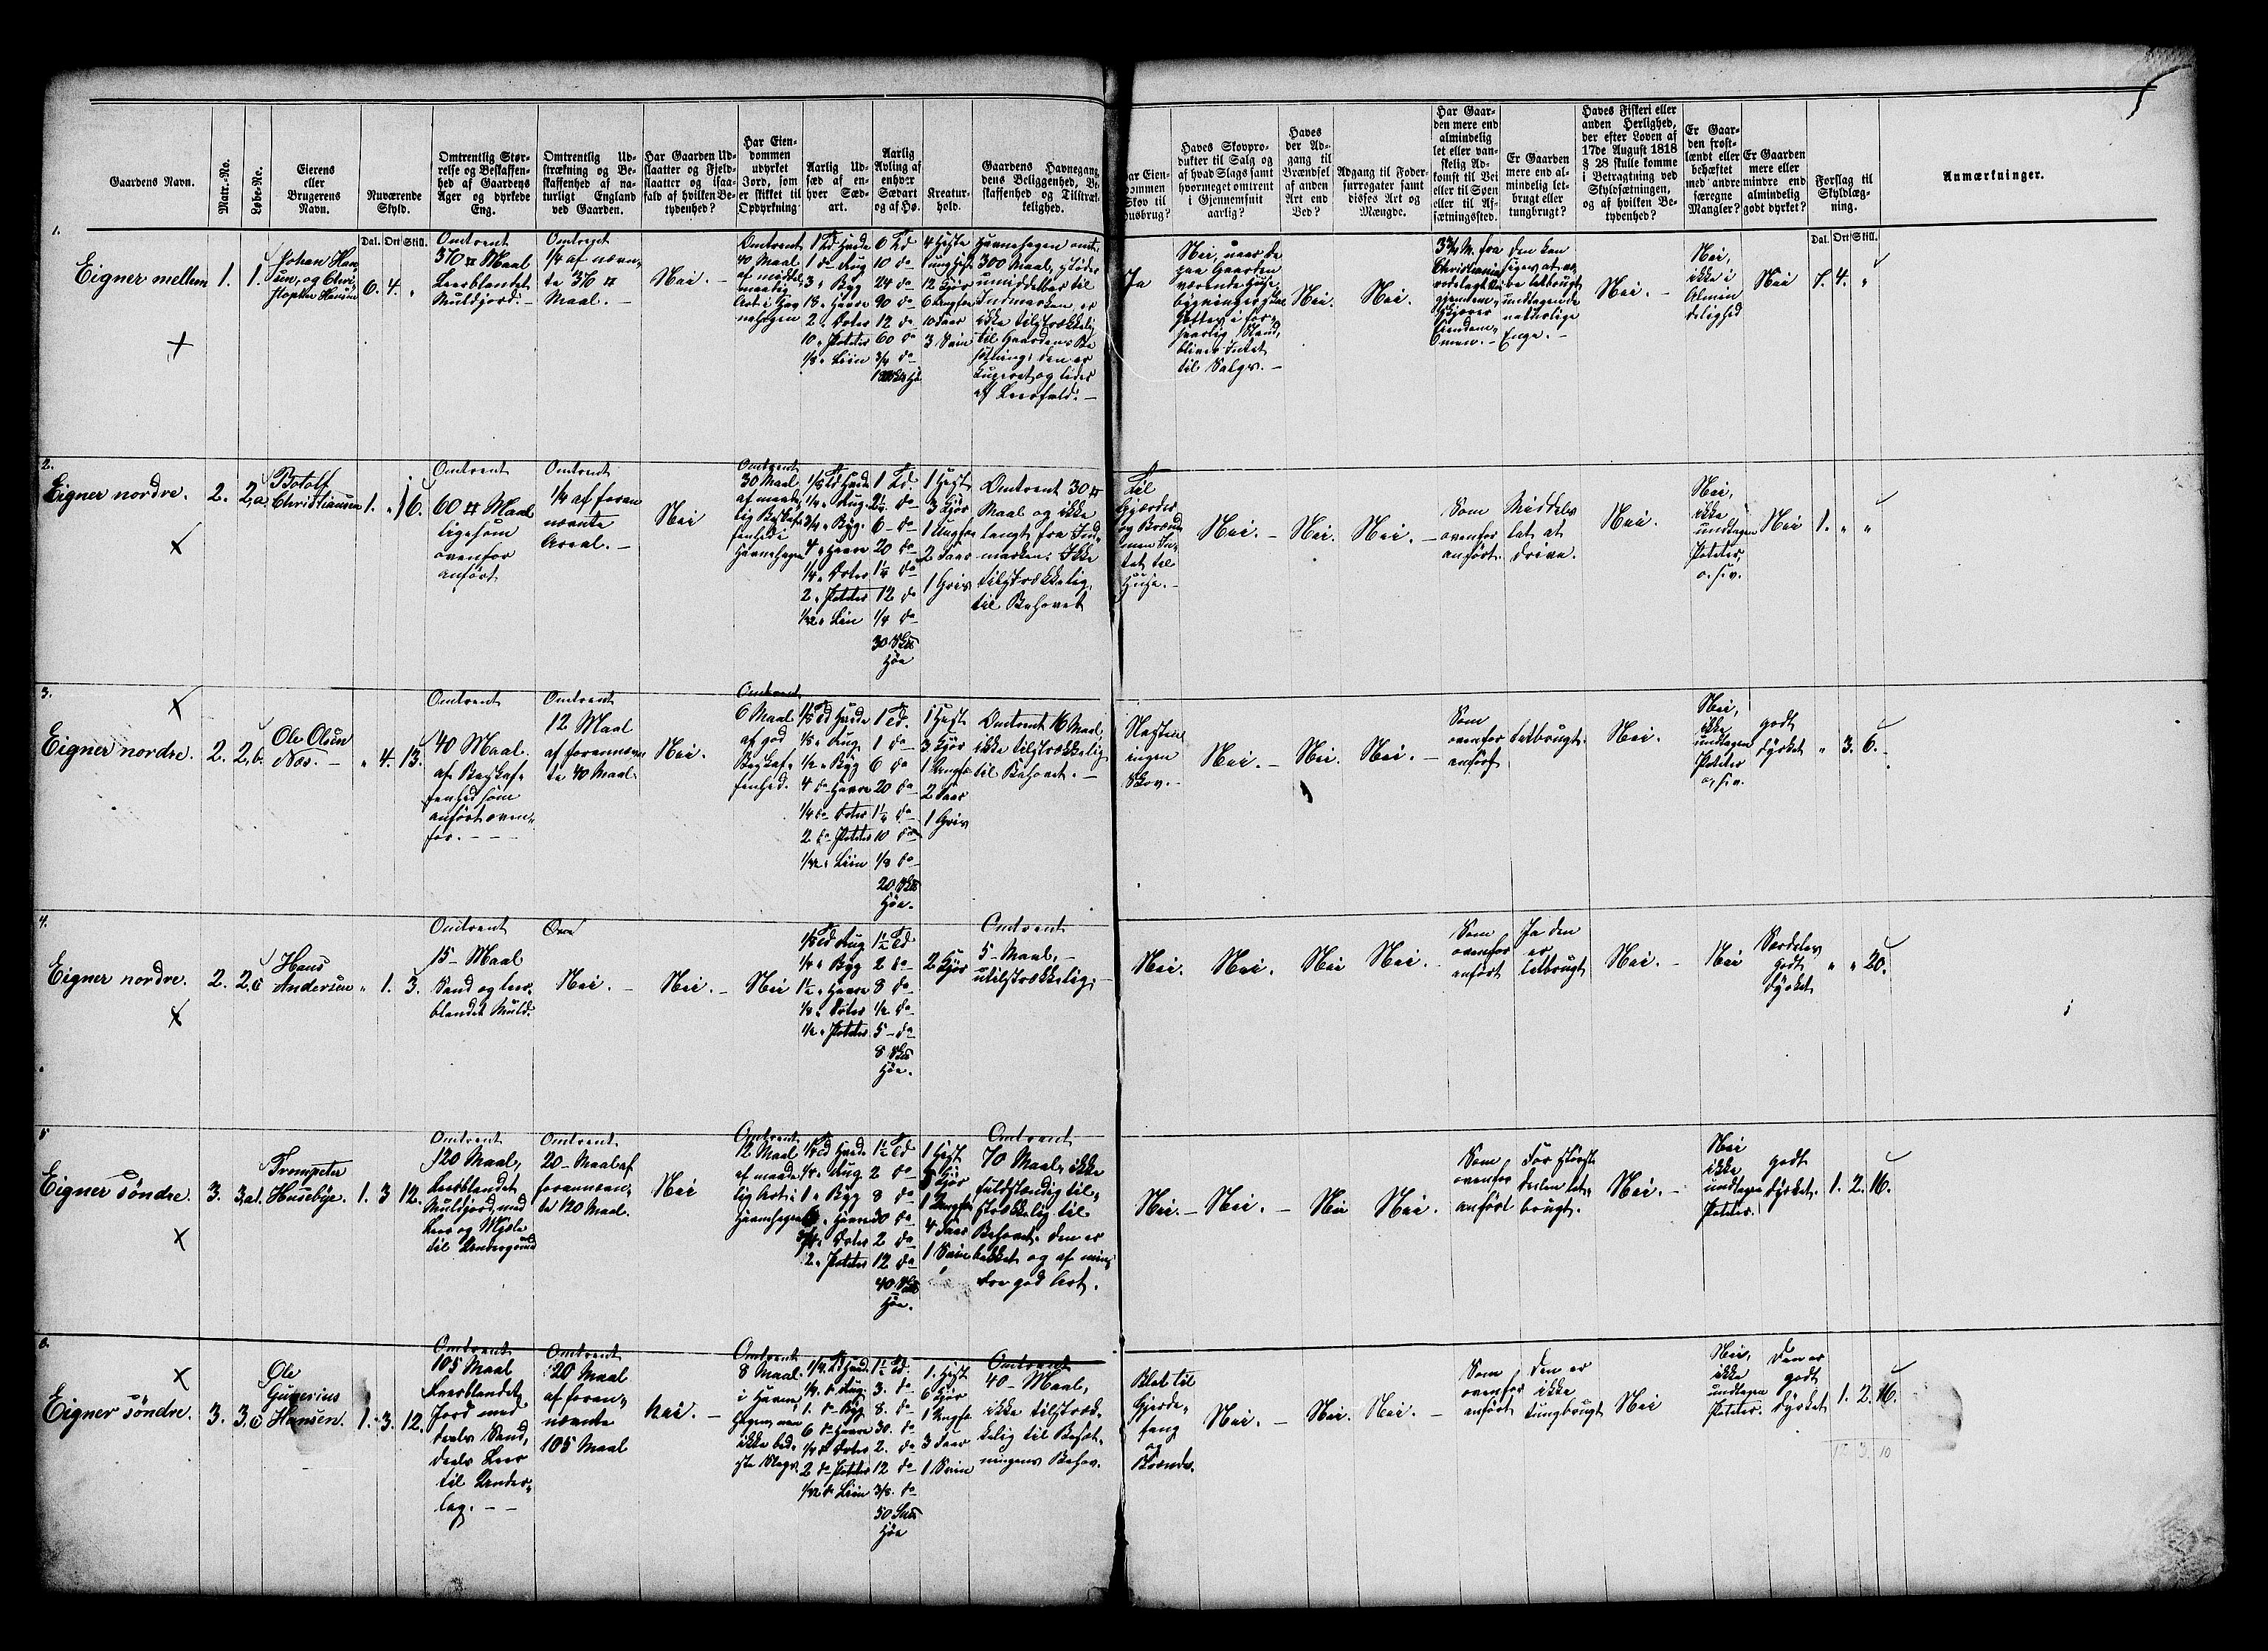 Gaardens Navn.
Matr.-No.
Løbe-No.
Eierens
eller
Brugerens
Navn.
Nuværende
Skyld.
Dal. Ort Skill.
Omtrentlig Stør-
relse og Beskaffen-
hed af Gaardens
Ager og dyrkede
Eng.
Omtrentlig Ud-
strækning og Be-
skaffenhed af na-
turligt England
ved Gaarden.
Har Gaarden Ud-
slaatter og Fjeld-
slaatter og isaa-
fald af hvilken Be-
tydenhed?
Har Eien-
dommen
udyrket
Jord, som
er skikket til
Opdyrkning
Aarlig Ud-
sæd af en-
hver Sæd-
art.
Aarlig
Avling af
enhver
Sædart
og af Hø.
Kreatur-
hold.
Gaardens Havnegang,
dens Beliggenhed, Be-
skaffenhed og Tilstræk-
kelighed.
Har Eien-
dommen
Skov til
Husbrug?
Haves Skovpro-
dukter til Salg og
af hvad Slags samt
hvormeget omtrent
i Gjennemsnit
aarlig?
Haves
der Ad-
gang til
Brændsel
af anden
Art end
Ved?
Adgang til Foder-
surrogater samt
disses Art og
Mængde.
Har Gaar-
den mere end
almindelig
let eller van-
skelig Ad-
komst til Vei
eller til Søen
eller til Af-
sætningssted.
Er Gaarden
mere end al-
mindelig let-
brugt eller
tungbrugt?
Haves Fiskeri eller
anden Herlighed,
der efter Loven af
17de August 1818
§ 28 skulle komme
i Betragtning ved
Skyldsætningen,
og af hvilken Be-
tydenhed?
Er Gaar-
den frost-
lændt eller
behæftet
med andre
særegne
Mangler?
Er Gaarden
mere eller
mindre end
almindelig
godt dyrket?
Forslag til
Skyldlæg-
ning.
Dal. Ort Skill.
Anmærkninger.
1.
Eigner mellem
1.
1.
Johan Han
sen, og Chri
stopher Hansen
6. 4. "
Omtrent
370 Maal
Leerblandet
Muldjord.
Omtrent
1/4 af nævn-
te 370
Maal.
Nei.
Omtrent
40 Maal
af middel
maatig
Art i Hav
nehagen
1 Td Hvede
1 do Rug
3 " Byg
18 " Havre
2 " Erter
10 " Poteter
1/8 " Liin
6 Td
10 do
24 do
90 do
12 do
60 do
3/4 do
4 Heste
12 Kjør
6 Ungfæ
10 Faar
3 Sviin
Havnehagen omtr.
300 Maal, støder
umiddelbar til
Indmarken, er
ikke tilstrækkelig
til Gaardens Be
sætning; den er
kuperet og lider
af Leerfald.
Ja
Nei, naar de
paa Gaarden
værende Huse,
bygninger skal
holdes i for-
svarlig Stand,
bliver Intet
til Salgs.
Nei.
Nei.
3 3/4 M. fra
Christiania
Den kan
siges at væ
re letbrugt
undtagen de
naturlige
Enge.
Nei.
Nei,
ikke i
Almin
delighed
Nei
7. 4. "
2.
Eigner nordre.
2.
2,a.
Botolf
Christiansen
1. " 16.
Omtrent
60 Maal
ligesom
ovenfor
anført
Omtrent
1/4 af foran
nævnte
Areal.
Nei
Omtrent
30 Maal
af maade
lig Beskaf
fenhed i
Havnehagen
1/8 Td Hvede
1/4 " Rug
3/4 " Byg.
4 " Havre
1/4 " Erter
2 " Poteter
1/32 " Liin
1 Td.
2 1/2 do
6 do
20 do
1 1/4 do
12 do
1/4 do
30 Sk℔
Høe
1 Hest
3 Kjør
1 Ungfæ
2 Faar
1 Griis
Omtrent 30
Maal og ikke
langt fra Ind-
marken; Ikke
tilstrækkelig
til Behovet
Til
Gjærder
og Brænde
men In-
tet til
Huse.
Nei.
Nei.
Nei.
Som
ovenfor
anført.
Middels
let at
drive.
Nei.
Nei,
ikke
undtagen
Poteter,
o. s. v.
Nei
1. " "
3.
Eigner nordre.
2.
2,b.
Ole Olsen
Næs.
" 4. 13.
Omtrent
40 Maal.
af Beskaf-
fenhed som
anført oven-
for.
Omtrent
12 Maal
af forannævn
te 40 Maal.
Nei.
Omtrent
6 Maal
af god
Beskaf-
fenhed.
1/8 Td Hvede
1/8 " Rug
1/2 " Byg
4 do Havre
1/4 do Erter
2 do Poteter
1/32 " Liin
1 Td.
1 do
6 do
20 do
1 1/4 do
10 do
1/8 do
20 Sk℔
Høe.
1 Hest
3 Kjør
1 Ungfæ
2 Faar
1 Griis
Omtrent 16 Maal,
ikke tilstrækkelig
til Behovet.
Næsten
ingen
Skov.
Nei.
Nei.
Nei.
Som
ovenfor
anført
letbrugt.
Nei.
Nei,
ikke
undtagen
Poteter
o. s. v.
godt
dyrket
" 3. 6.
4.
Eigner nordre.
2.
2,c
Hans
Andersen
" 1. 3.
Omtrent
15 Maal
Sand og leer-
blandet Muld.
Nei.
Nei.
Nei
1/8 Td Rug
1/4 " Byg
1 1/2 " Havre
1/8 " Erter
1/2 " Poteter
1 1/2 Td
2 do
8 do
1/2 do
5 do
8 Sk℔
Høe.
2 Kjør
Omtrent
5 Maal,
utilstrækkelig.
Nei.
Nei.
Nei
Nei.
Som
ovenfor
anført
Ja den
er
letbrugt
Nei.
Nei
Særdeles
godt
dyrket
" " 20.
5
Eigner söndre.
3.
3,a1.
Trompeter
Husebye.
1. 3 12.
Omtrent
120 Maal,
Leerblandet
Muldjord, med
Leer og Mjæle
til Undergrund
Omtrent
20 Maal af
forannævn-
te 120 Maal.
Nei
Omtrent
12 Maal
af maade
lig Art i
Havnehagen
1/4 Td Hvede
1/4 " Rug
1 " Byg
6 " Havre
" Erter
2 " Poteter
1 1/2 Td
2 do
8 do
30 do
2 do
12 do
40 Sk℔
Høe.
1 Hest
Kjør
1 Ungfæ
4 Faar
1 Sviin
Omtrent
70 Maal, ikke
fuldstændig til-
strækkelig til
Behovet. Den er
bakket og af min-
dre god Art.
Nei.
Nei.
Nei
Nei.
Som
ovenfor
anført
For største
Delen let-
brugt.
Nei.
Nei
ikke
undtagen
Poteter.
godt
dyrket.
1. 2. 16.
6.
Eigner söndre.
3.
3,c
Ole
Gunerius
Hansen.
1. 3. 12.
Omtrent
105 Maal
Leerblandet
Jord med
deels Sand,
deels Leer
til Under-
lag.
Omtrent
20 Maal
af foran-
nævnte
105 Maal
Nei.
Omtrent
8 Maal
i Havne
hagen, men
ikke bed-
ste Slags.
1/4 Td Hvede
1/4 do Rug
1 do Byg
6 do Havre
1/4 do Erter
2 do Poteter
1/32 do Liin
1 1/2 Td.
3. do
8. do
30. do
2. do
12 do
3/8. do
50 Sk℔
Høe
1. Hest
6 Kjør
1 Ungfæ
3 Faar
1 Sviin
Omtrent
40 Maal,
ikke tilstræk-
kelig til Besæt-
ningens Behov.
Blot til
Gjerde-
fang
og
Brænde.
Nei.
Nei.
Nei.
Som
ovenfor
anført
Den er
ikke
tungbrugt
Nei
Nei,
ikke
undtagen
Poteter.
Den er
godt
dyrket
1. 2. 16.